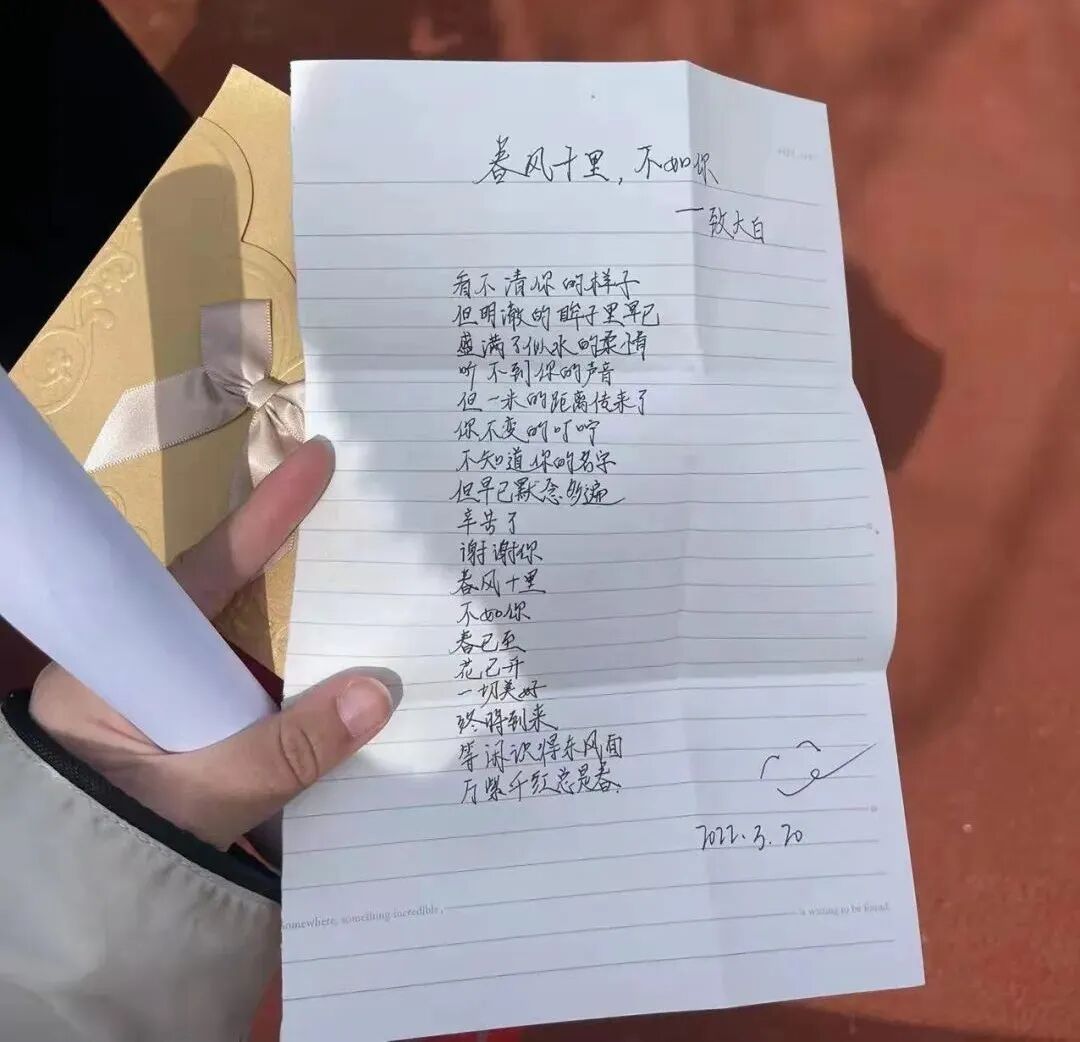 春风十里，不如你
——致大白
看不清你的样子
但明澈的眸子里早已
盛满了似水的柔情
听不到你的声音
但一米的距离传来了
你不变的叮咛
不知道你的名字
但早已默念多遍
辛苦了
谢谢你
春风十里
不如你
春已至
花已开
一切美好
终将到来
等闲识得东风面
万紫千红总是春.
2022.3.20
Somewhere, something incredible,
is waiting to be found.